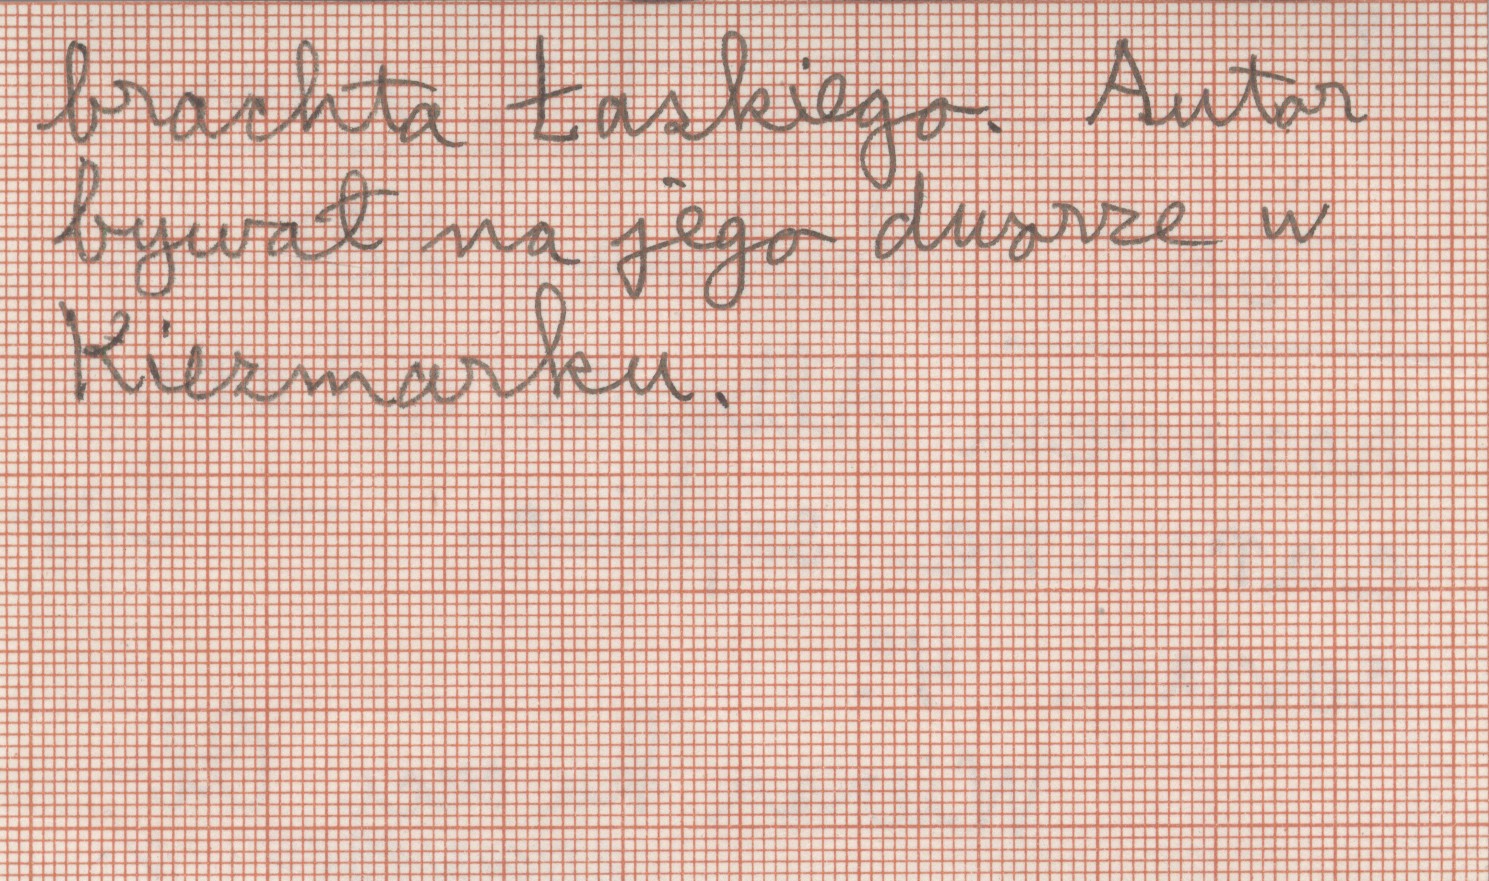 brachta Łaskiego. Autor
bywał na jego dworze w
Kiezmarku.